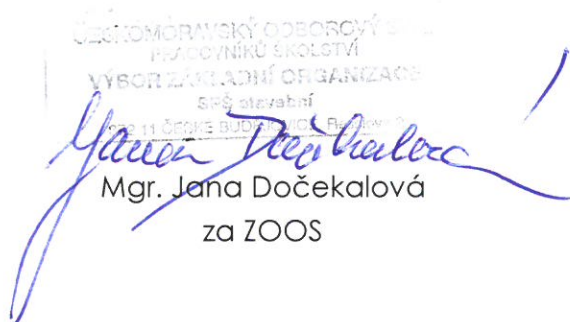 ČESKOMORAVSKÝ ODBOROVÝ
PRACOVNÍKŮ ŠKOLSTVÍ
VÝBOR ZÁKLADNÍ ORGANIZACE
SPŠ stavební
11 ČESKÉ BUDĚJOVICE
Jana Dočekalová
Mgr. Jana Dočekalová
za ZOOS